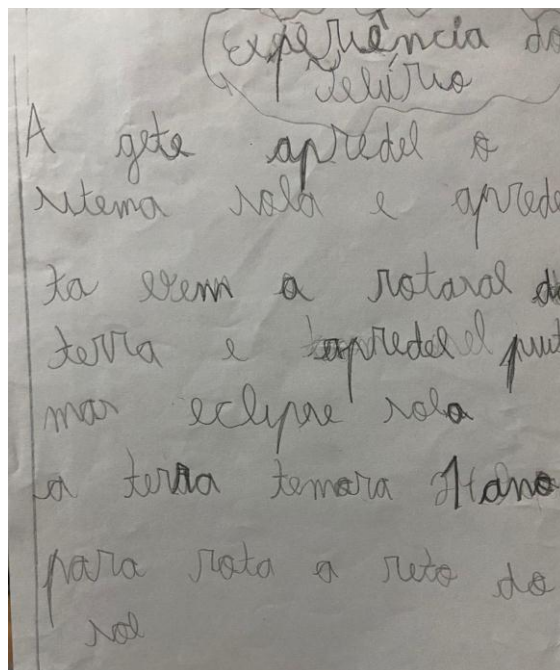 experiência do
Telúrio
A gete apredel o
sitema sola e aprede
ta vem a rotasal da
terra e apredel
mas eclipse sola
a terra temora 1 ano
para rota a reto do
sol